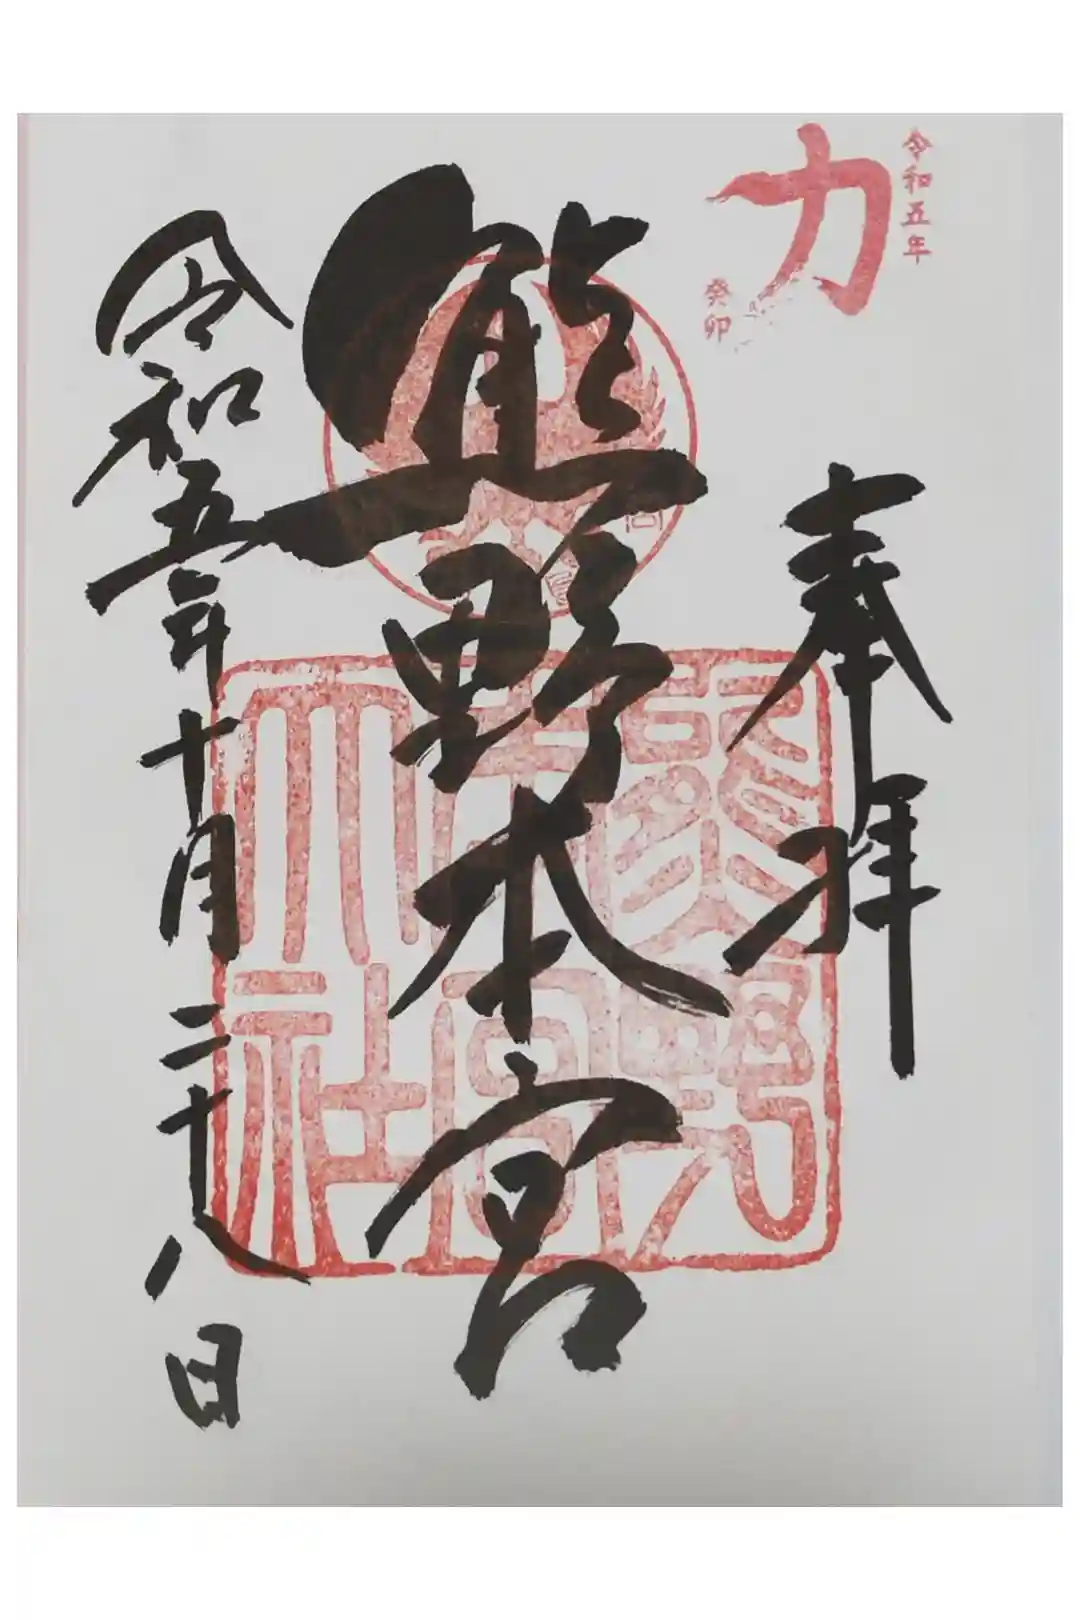 令和五年
力
癸卯
奉拝
熊野本宮
熊野本宮大社
令和五年十月二十八日